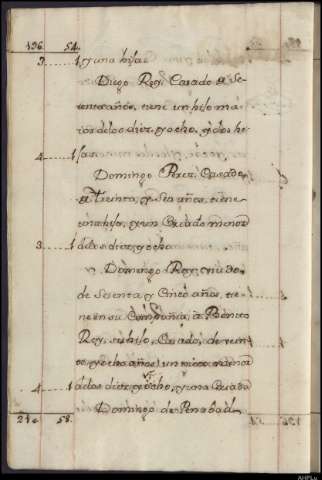 196. 54.
3 1 y una hija
Diego Rey, Casado de Se-
senta años, tiene un hijo ma-
ior de los diez, y ocho, y dos hi-
4 1 jas.
Domingo Perez, Casado,
de treinta, y seis años, tiene
un hijo, y un Criado menor
3 1 de los diez, y ocho
Domingo Rey, viudo
de Sesenta, y Cinco años, tie-
ne en su Compañia, a Benito
Rey, su hijo, Casado, de vein-
te, y ocho años, un nieto menor
4 1 de los diez, y ocho, y una Criada
58. Domingo de Penabad
AHPLu